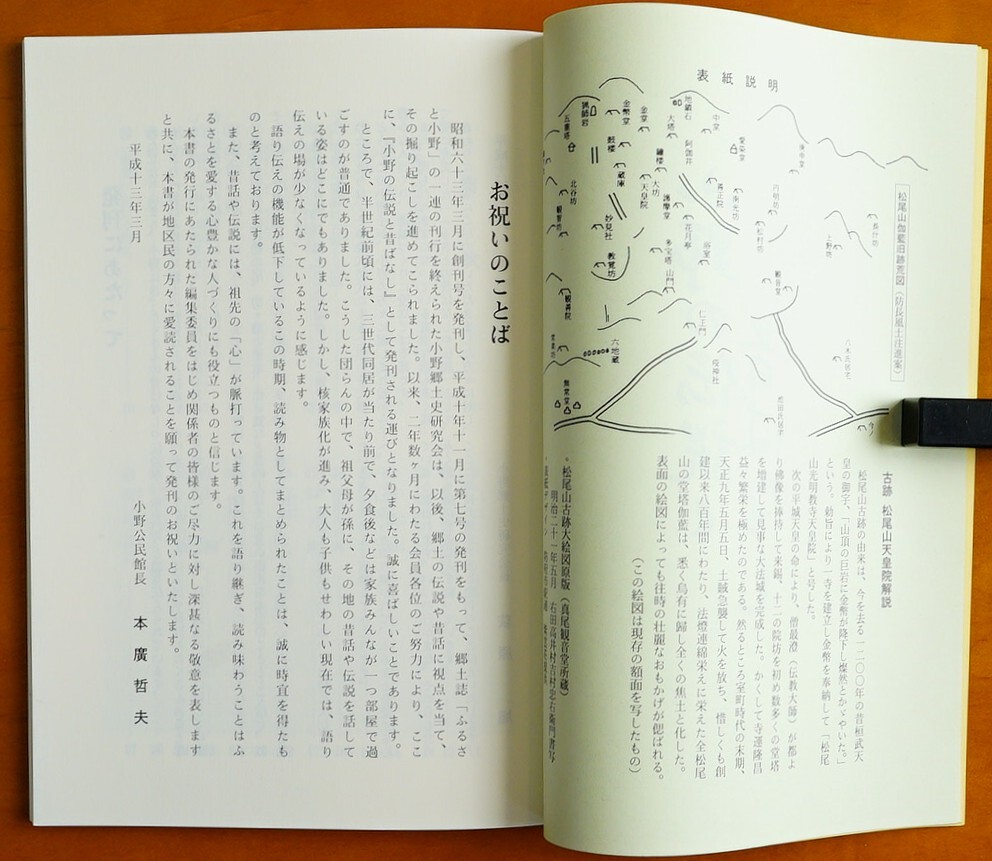 表紙説明
松尾山伽藍旧跡荒図（防長風土注進案）
長什坊
上野坊
八木氏居宅
円明坊
松村坊
観音堂
池田氏居宅
愛染堂
東光坊
善正院
浴室
疫神社
地蔵石
中堂
大塔
阿伽井
花月亭
仁王門
金堂
鐘楼
大坊
護摩堂
多宝塔
山門
金幣堂
鼓楼
蔵庫
天皇院
妙見社
教覚坊
六地蔵
五重塔
北谷坊
観音院
無常堂
古跡　松尾山天皇院解説
松尾山古跡の由来は、今を去る一二〇〇年の昔桓武天
皇の御宇、「山頂の巨岩に金幣が降下し燦然とかゞやいた。」
という。勅旨により一寺を建立し金幣を奉納して「松尾
山光明教寺天皇院」と号した。
次の平城天皇の命により、僧最澄（伝教大師）が都よ
り佛像を捧持して来錫、十二の院坊を初め数多くの堂塔
を増建して見事な大法城を完成した。かくして寺運隆昌
益々繁栄を極めたのである。然るところ室町時代の末期、
天正九年五月五日、土賊急襲して火を放ち、惜しくも創
建以来八百年間にわたり、法燈連綿栄えに栄えた全松尾
山の堂塔伽藍は、悉く烏有に帰し全くの焦土と化した。
表面の絵図によっても往時の壮麗なおもかげが偲ばれる。
（この絵図は現存の額面を写したもの）
・松尾山古跡大絵図原版（真尾観音堂所蔵）
明治二十一年五月　右田高井村吉村忠右衛門書写
お祝いのことば
昭和六十三年三月に創刊号を発刊し、平成十年十一月に第七号の発刊をもって、郷土誌「ふるさ
と小野」の一連の刊行を終えられた小野郷土史研究会は、以後、郷土の伝説や昔話に視点を当て、
その掘り起こしを進めてこられました。以来、二年数ヶ月にわたる会員各位のご努力により、ここ
に、『小野の伝説と昔ばなし』として発刊される運びとなりました。誠に喜ばしいことであります。
ところで、半世紀前頃には、三世代同居が当たり前で、夕食後などは家族みんなが一つ部屋で過
ごすのが普通でありました。こうした団らんの中で、祖父母が孫に、その地の昔話や伝説を話して
いる姿はどこにでもありました。しかし、核家族化が進み、大人も子供もせわしい現在では、語り
伝えの場が少なくなっているように感じます。
語り伝えの機能が低下しているこの時期、読み物としてまとめられたことは、誠に時宜を得たも
のと考えております。
また、昔話や伝説には、祖先の「心」が脈打っています。これを語り継ぎ、読み味わうことはふ
るさとを愛する心豊かな人づくりにも役立つものと信じます。
本書の発行にあたられた編集委員をはじめ関係者の皆様のご尽力に対し深甚なる敬意を表します
と共に、本書が地区民の方々に愛読されることを願って発刊のお祝いといたします。
平成十三年三月
小野公民館長　本廣哲夫